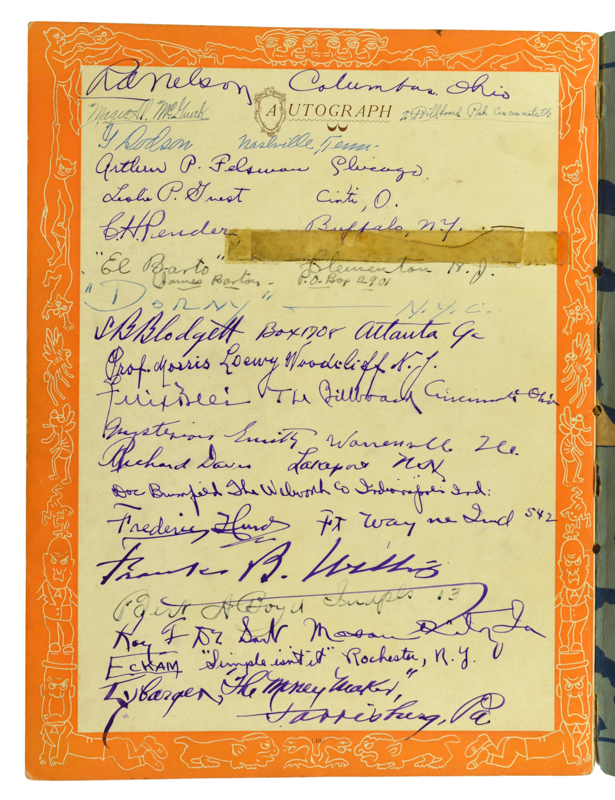 R.A. Nelson Columbus, Ohio
AUTOGRAPH
McGuirk Billboard Pub Cincinnati O.
Dodson Nashville, Tenn.
Arthur P. Felsman Chicago.
Leslie P. Guest Cinti, O.
C.H. Pender Buffalo, N.Y.
"El Barto" Clementon N.J.
James Barton. P.O. Box 2901
"DORNY" N.Y.C.
S B Blodgett Box 1708 Atlanta Ga
Prof. Morris Loewy Woodcliff N.J.
The Billboard Cincinnati Ohio
Mysterious Smith Warrenville Ill.
Richard Davis N.Y.
Doc Brumfield The Welworth Co Indianapolis Ind.
Ft Wayne Ind 542
B. Willis
A Boyd 13
Mason City Ia
ECHAM "Simple isn't it" Rochester, N.Y.
Tarbarger, "The Money Maker,"
Harrisburg, Pa